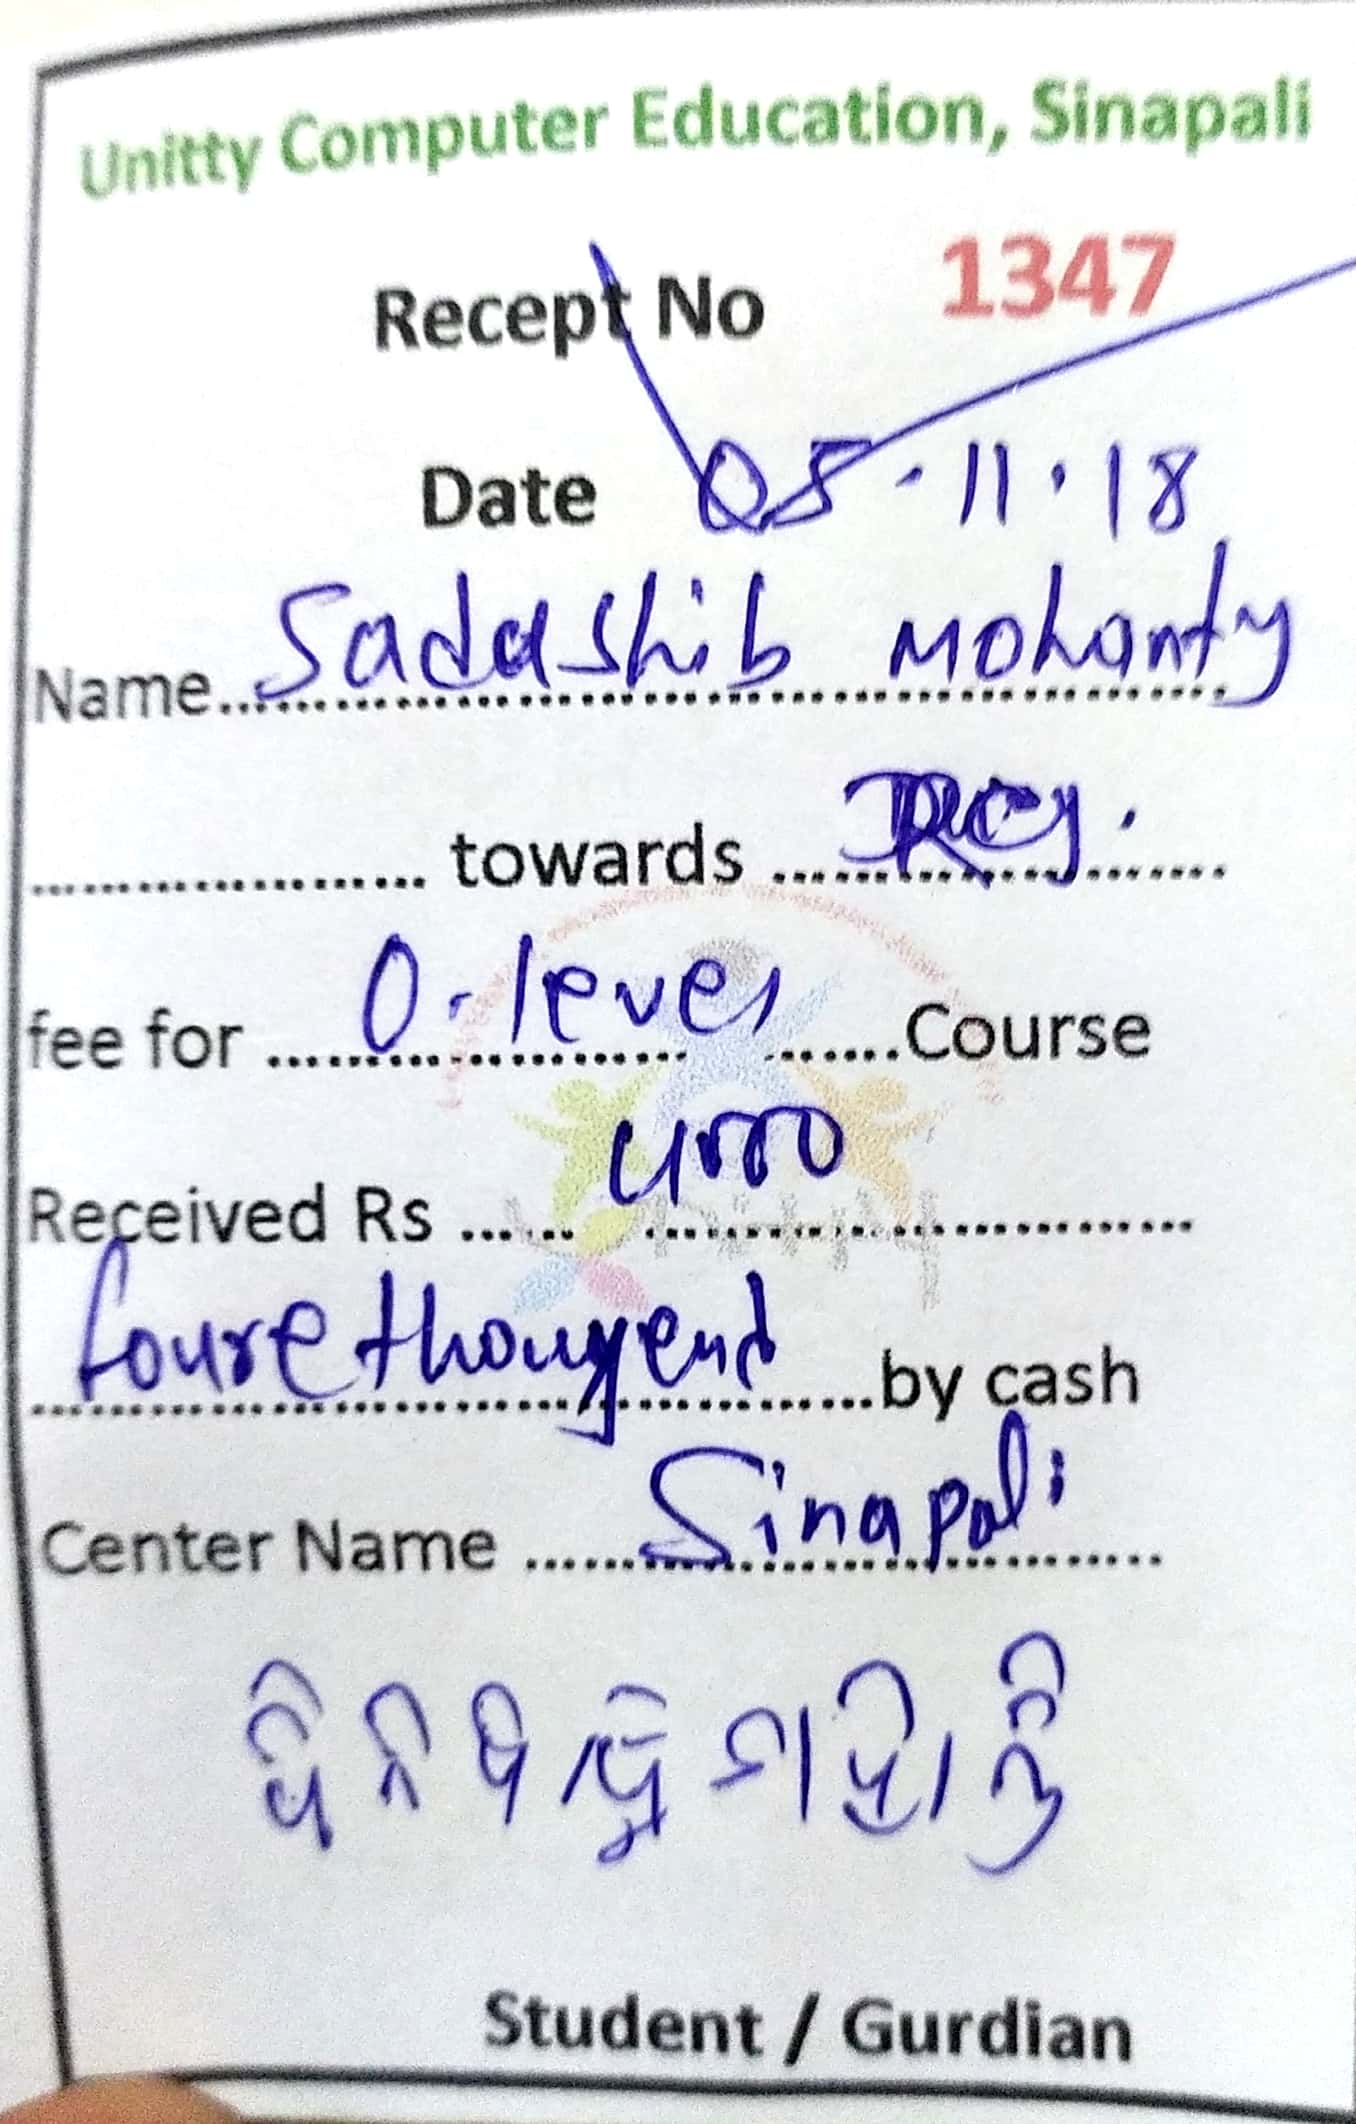 Unitty Computer Education, Sinapali
Recept No 1347
Date 05.11.18
Name.. Sadashib Mohanty
.................... towards ... Reg. .......
fee for ... O-level .......Course
Received Rs ...... 4000 ...........................
foure thousend ...by cash
Center Name ...... Sinapali ..........
Student / Gurdian